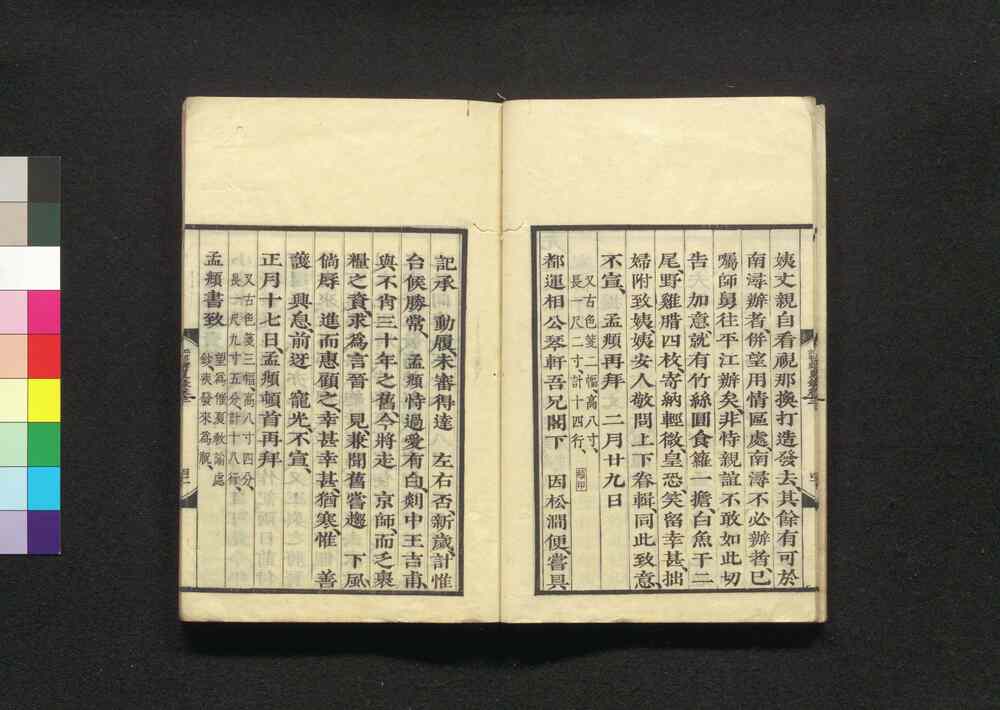 姨丈親自看視那換打造發去其餘有可於
南潯辦者、併望用情區處南潯不必辦者、已
囑師舅往平江辦矣、非恃親誼不敢如此切
告 加意就有竹絲圓食籮一擔白魚干二
尾、野雞腊四枚、寄納輕微、皇恐笑留幸甚、拙
婦附致姨姨安人敬問上下眷輯、同此致意、
不宣、 孟頫再拜 二月廿九日
又古色箋二幅高八寸、
長一尺二寸、計十四行、
都運相公琴軒吾兄閣下 因松澗便、嘗具
記承 動履未審得達 左右否、新歲、計惟
台候勝常、 孟頫恃過愛有白、剡中王吉甫、
與不肖三十年之舊、今將走 京師、而乏裹
糧之資、求爲言晉 見、兼聞舊嘗趨 下風、
倘辱 進而惠顧之、幸甚幸甚、猶寒、惟 善
護 興息、前迓 寵光、不宣、
正月十七日、孟頫頓首再拜
又古色箋三幅、高八寸四分、
長一尺九寸五分計十八行、
孟頫書致
望爲催夏教諭處
鈔、夾發來爲貺、